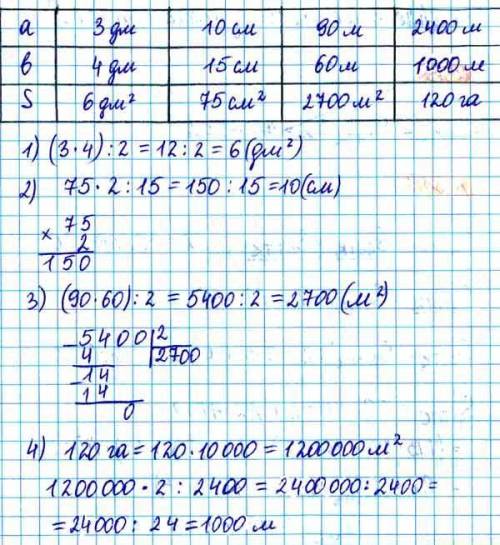 a 3 дм 10 см 90 м 2400 м
в 4 дм 15 см 60 м 1000 м
S 6 дм² 75 см² 2700 м² 120 га
1) (3·4):2 = 12:2 = 6 (дм²)
2) 75·2:15 = 150:15 = 10 (см)
× 75
2
150
3) (90·60):2 = 5400:2 = 2700 (м²)
- 5400 | 2
4 | 2700
- 14
14
0
4) 120 га = 120·10 000 = 1200 000 м²
1200 000 · 2 : 2400 = 2400 000 : 2400 =
= 24000 : 24 = 1000 м